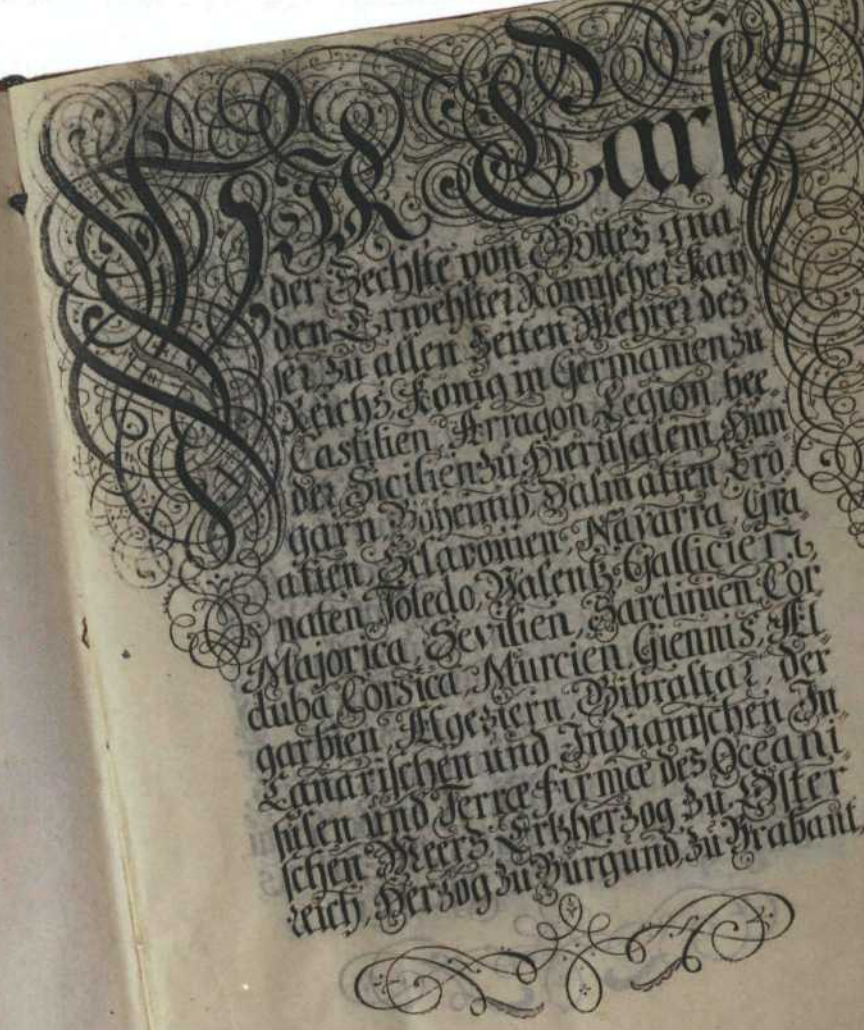 WIR Carl
der Sechste von Gottes gna
den Erwehlter Römischer Kay
ser zu allen Zeiten Mehrer des
Reichs, König in Germanien zu
Castilien, Arragon, Legion, bee
der Sicilien zu Hierusalem, Hun
garn, Böhemb, Dalmatien, Cro
atien, Sclavonien, Navarra, Gra
naten, Toledo, Valentz, Gallicien,
Majorica, Sevilien, Sardinien, Cor
duba, Corsica, Murcien, Giennis, Al
garbien, Algeziern, Gibraltar, der
Canarischen und Indianischen In
sulen und Terræ firmæ des Oceani
schen Meers, Ertzherzog zu Öster
reich, Herzog zu Burgund, zu Brabant,